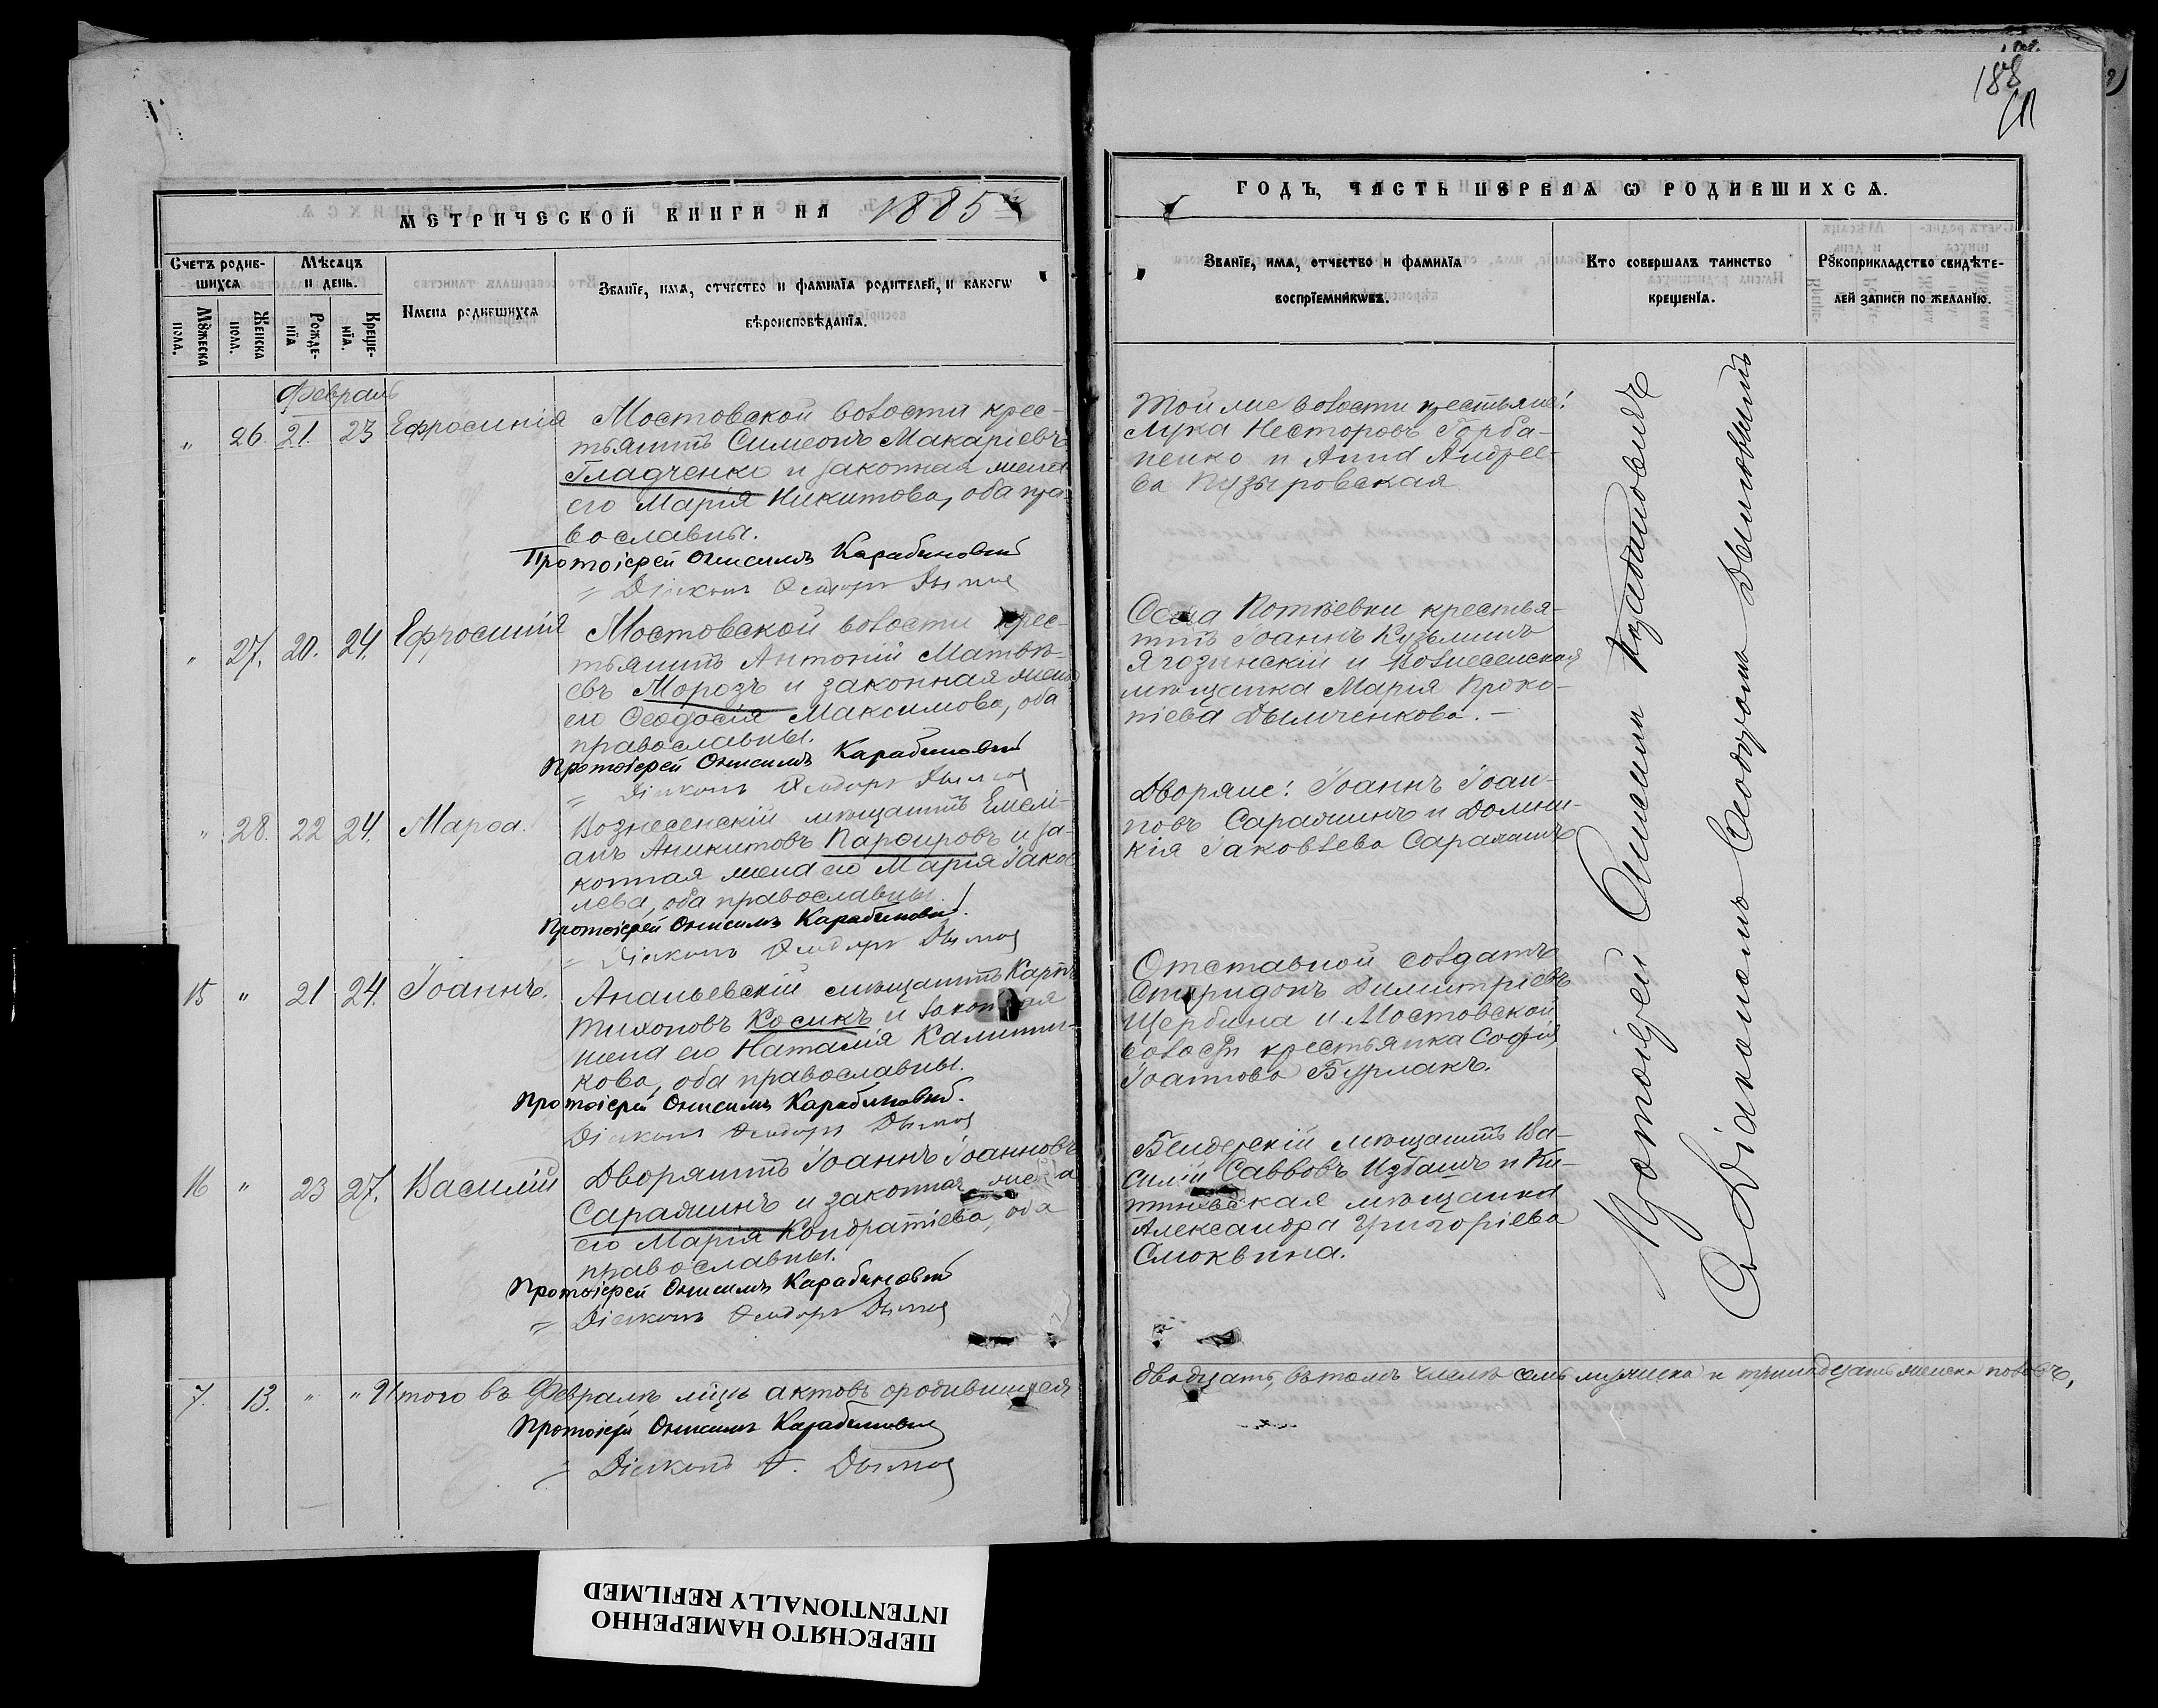 188
МЕТРИЧЕСКОЙ КНИГИ НА 1885 й
Счетъ родив-
шихсѧ
Мѣсѧцъ
и день.
Мꙋжеска
пола.
Женска
пола.
Рожде-
нїѧ
Креще-
нїѧ.
Имена родившихсѧ
Званїе, имѧ, отчество и фамилїѧ родителей, и какогѡ
вѣроисповѣданїѧ.
Февраль
" 26. 21. 23 Ефросинія
Мостовской волости крес-
тьянинъ Симеонъ Макаріевъ
Гладченко и законная жена
его Марія Никитова, оба пра-
вославны.
Протоіерей Онисимъ Карабиновичъ
Діаконъ Ѳеодоръ
" 27. 20. 24. Ефросинія
Мостовской волости крес-
тьянинъ Антоній Матвѣ-
евъ Морозъ и законная жена
его Ѳеодосія Максимова, оба
православны.
Протоіерей Онисимъ Карабиновичъ
Діаконъ Ѳеодоръ
" 28. 22 24. Марѳа.
Вознесенскій мѣщанинъ Емелі-
анъ Аникитовъ Парѳировъ и за-
конная жена его Марія Іаков-
лева, оба православны.
Протоіерей Онисимъ Карабиновичъ.
Діаконъ Ѳеодоръ
15 " 21 24. Іоаннъ.
Ананьевскій мѣщанинъ Карпъ
Тихоновъ Косикъ и законная
жена его Наталія Калинни-
кова, оба православны.
Протоіерей Онисимъ Карабиновичъ.
Діаконъ Ѳеодоръ
16 " 23 27. Василій
Дворянинъ Іоаннъ Іоанновъ
Сарамжинъ и законная жена
его Марія Кондратіева, оба
православны.
Протоіерей Онисимъ Карабиновичъ
Діаконъ Ѳеодоръ
7. 13. " " Итого въ Февралѣ мцѣ актовъ ородившихся
Протоіерей Онисимъ Карабиновичъ
Діаконъ Ѳ.
ГОДЪ, ЧАСТЬ ПЕРВАѦ Ѡ РОДИВШИХСѦ.
Званїе, имѧ, отчество и фамилїѧ
воспрїемникѡвъ.
Кто совершалъ таинство
крещенїѧ.
Рꙋкоприкладство свидѣте-
лей записи по желанїю.
Той же волости крестьяне:
Лука Несторовъ Горба-
ненко и Анна Андрее-
ва Пузыровская
Села Потѣевки крестья-
нинъ Іоаннъ Кузьминъ
Ягозинскій и Вознесенская
мѣщанка Марія Проко-
піева Дымченкова.-
Дворяне: Іоаннъ Іоан-
новъ и Домни-
кія Іаковлева
Отставной солдатъ
Спиридонъ Димитріевъ
Щербина и Мостовской
волости крестьянка Софія
Іоаннова Бурлакъ.
Бендерскій мѣщанинъ Ва-
силій Саввовъ Избашъ и Ки-
шиневская мѣщанка
Александра Григоріева
Смоквина.
Протоіерей Онисимъ Карабиновичъ
съ Діакономъ Ѳеодоромъ
двадцать, въ томъ числѣ семь мужеска и тринадцать женска половъ,
ПЕРЕСНЯТО НАМЕРЕННО
INTENTIONALLY REFILMED